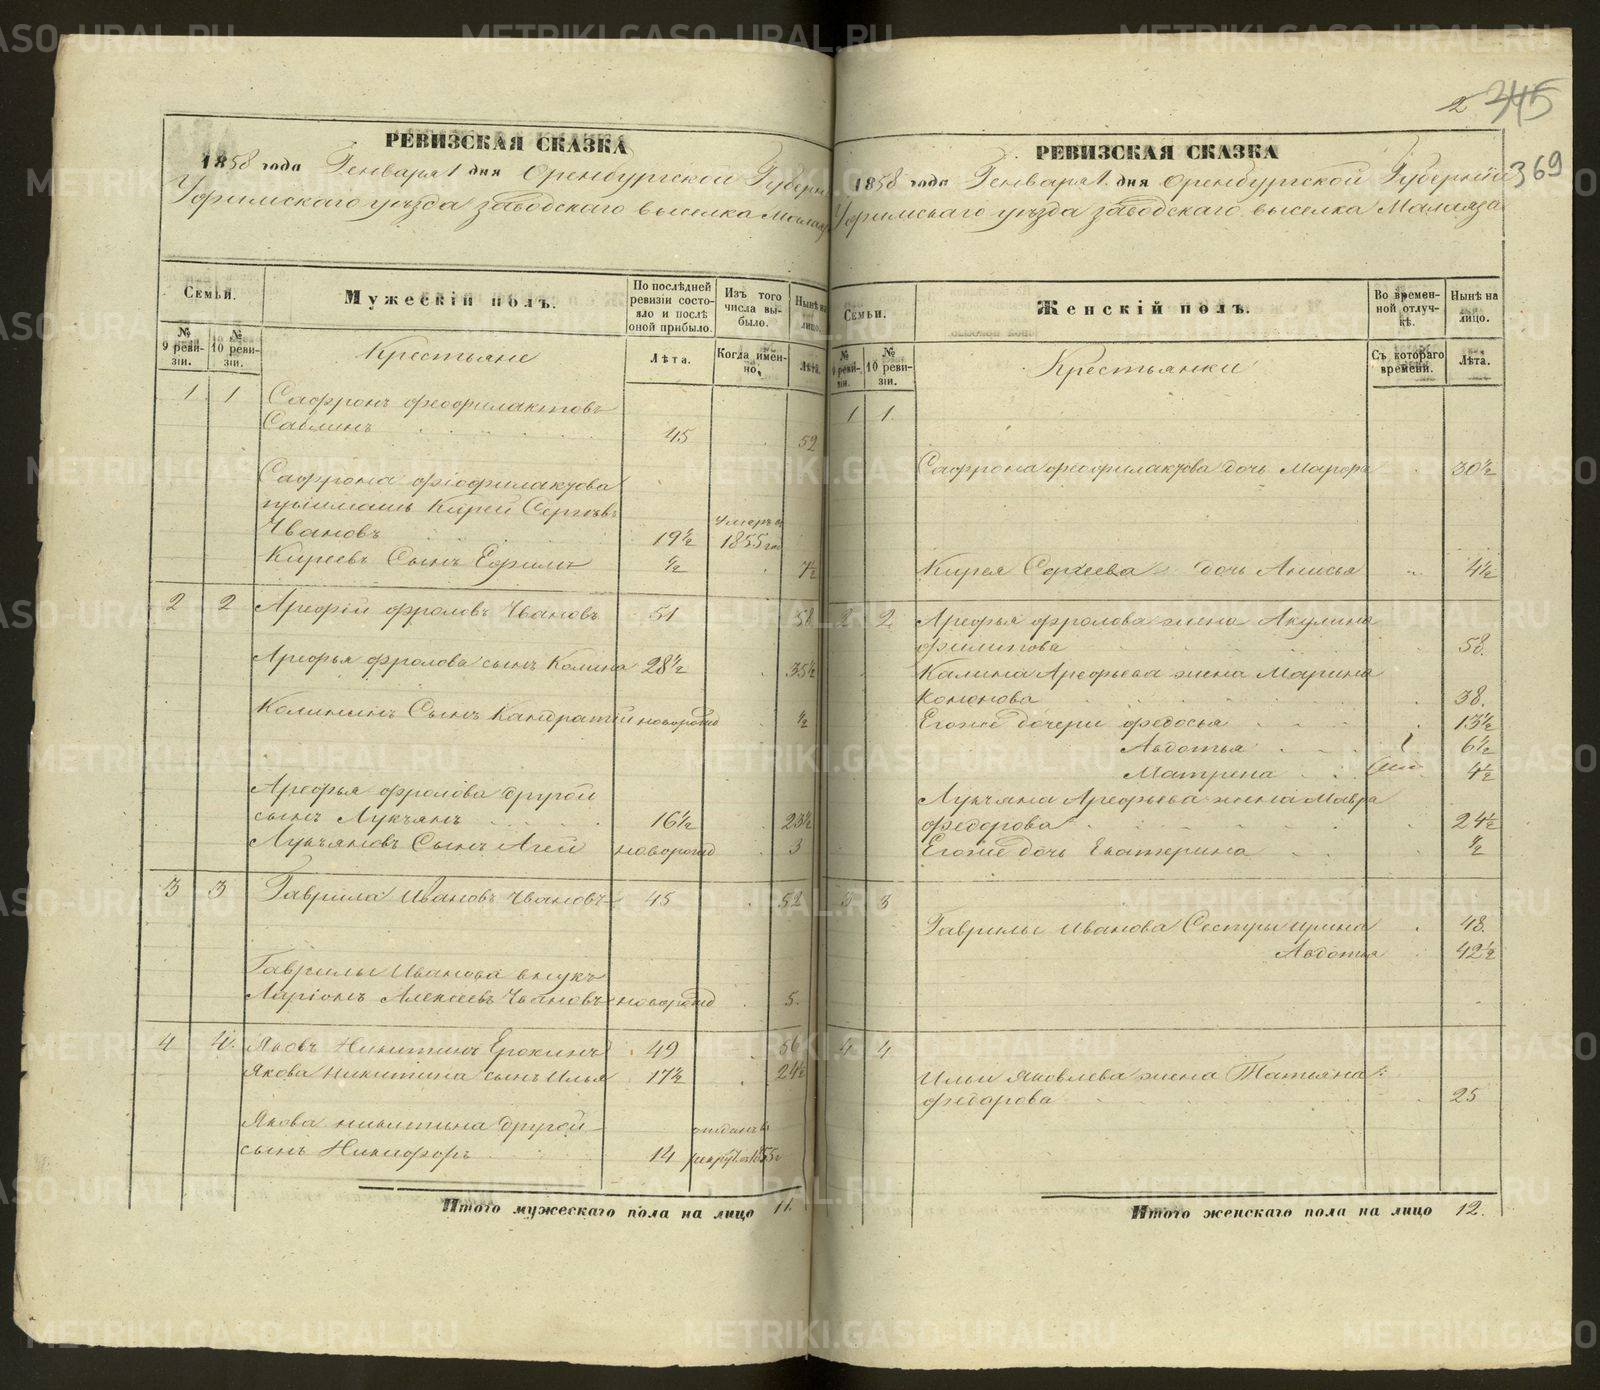 2 345
369
РЕВИЗСКАЯ СКАЗКА
1858 года Генваря 1 дня Оренбургской Губерніи
Уфимскаго уѣзда заводскаго выселка Малаяза
Семьи.
№ 9 ревизіи.
№ 10 ревизіи.
Мужескій полъ.
По послѣдней ревизіи состояло и послѣ оной прибыло.
Изъ того числа выбыло.
Нынѣ на лицо.
Крестьяне
Лѣта.
Когда именно,
Лѣта.
1 1 Сафронъ Феофилактовъ
Саблинъ 45 52
Сафрона Фіофилактова
пріимашь Кирей Сергѣевъ
Чвановъ 19½ умеръ в 1855 год
Киреевъ Сынъ Ефимъ ½ 7½
2 2 Арефій Фроловъ Чвановъ 51 58
Арефья Фролова сынъ Калина 28½ 35½
Калининъ Сынъ Кандратій новорожд ½
Арефья Фролова другой
сынъ Лукьянъ 16½ 23½
Лукьяновъ Сынъ Агей новорожд 3
3 3 Гаврила Ивановъ Чвановъ 45 52
Гаврилы Иванова внукъ
Ларіонъ Алексеевъ Чвановъ новорожд 5.
4 4. Яковъ Никитинъ Ерохинъ 49 56
Якова Никитина сынъ Илья 17½ 24½
Якова Никитина другой
сынъ Никифоръ 14 отданъ в рекруты 1855 г
Итого мужескаго пола на лицо 11.
РЕВИЗСКАЯ СКАЗКА
1858 года Генваря 1 дня Оренбургской Губерніи
Уфимскаго уѣзда заводскаго выселка Малаяза
Семьи.
№ 9 ревизіи.
№ 10 ревизіи.
Женскій полъ.
Во временной отлучкѣ.
Нынѣ на лицо.
Крестьянки
Съ котораго времени.
Лѣта.
1 1.
Сафрона Феофилактова дочь Марфа 30½
Кирея Сергеева дочь Анисья 4½
2 2. Арефья Фролова жена Акулина
Филипова 58.
Калина Арефьева жена Марина
Кононова 38.
Егоже дочери Федосья 13½
Авдотья 6½
Матрена 4½
Лукьяна Арефьева жена Мавра
Федорова 24½
Егоже дочь Екатерина ½
3 3
Гаврилы Иванова Сестры Ирина 48.
Авдотья 42½
4 4
Ильи Яковлева жена Татьяна
Федарова 25
Итого женскаго пола на лицо 12.
METRIKI.GASO-URAL.RU